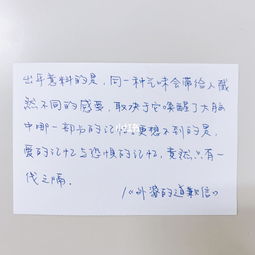 出乎意料的是,同一种气味会带给人截
然不同的感受,取决于它唤醒了大脑
中哪一部分的记忆,更想不到的是,
爱的记忆与恐惧的记忆,竟然只有一
代之隔.
/《外婆的道歉信》